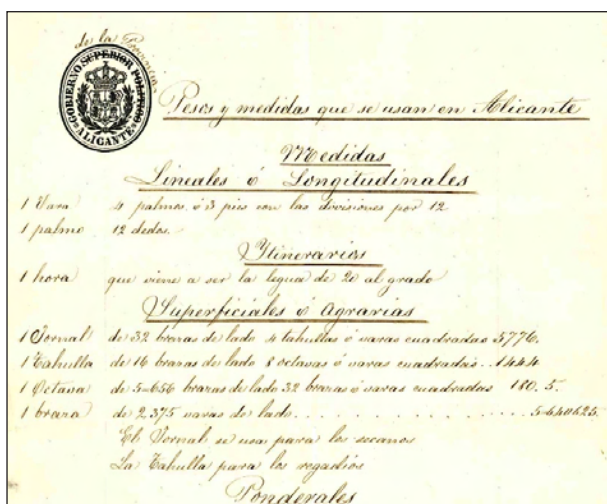 de la Provincia
GOBIERNO SUPERIOR POLITICO
ALICANTE
Pesos y medidas que se usan en Alicante
Medidas
Lineales ó Longitudinales
1 Vara 4 palmos ó 3 pies con las divisiones por 12
1 palmo 12 dedos.
Ytinerarios
1 hora que viene a ser la legua de 20 al grado
Superficiales ó Agrarias
1 Jornal de 32 brazas de lado 4 tahullas ó varas cuadradas 5776.
1 Tahulla de 16 brazas de lado 8 octavas ó varas cuadradas.. 1444
1 Octava de 5=656 brazas de lado 32 brazas ó varas cuadradas 180.5.
1 braza de 2375 varas de lado . . . . . . . . . . . . . . . . 5=640625.
El Jornal se usa para los secanos
La Tahulla para los regadios
Ponderales